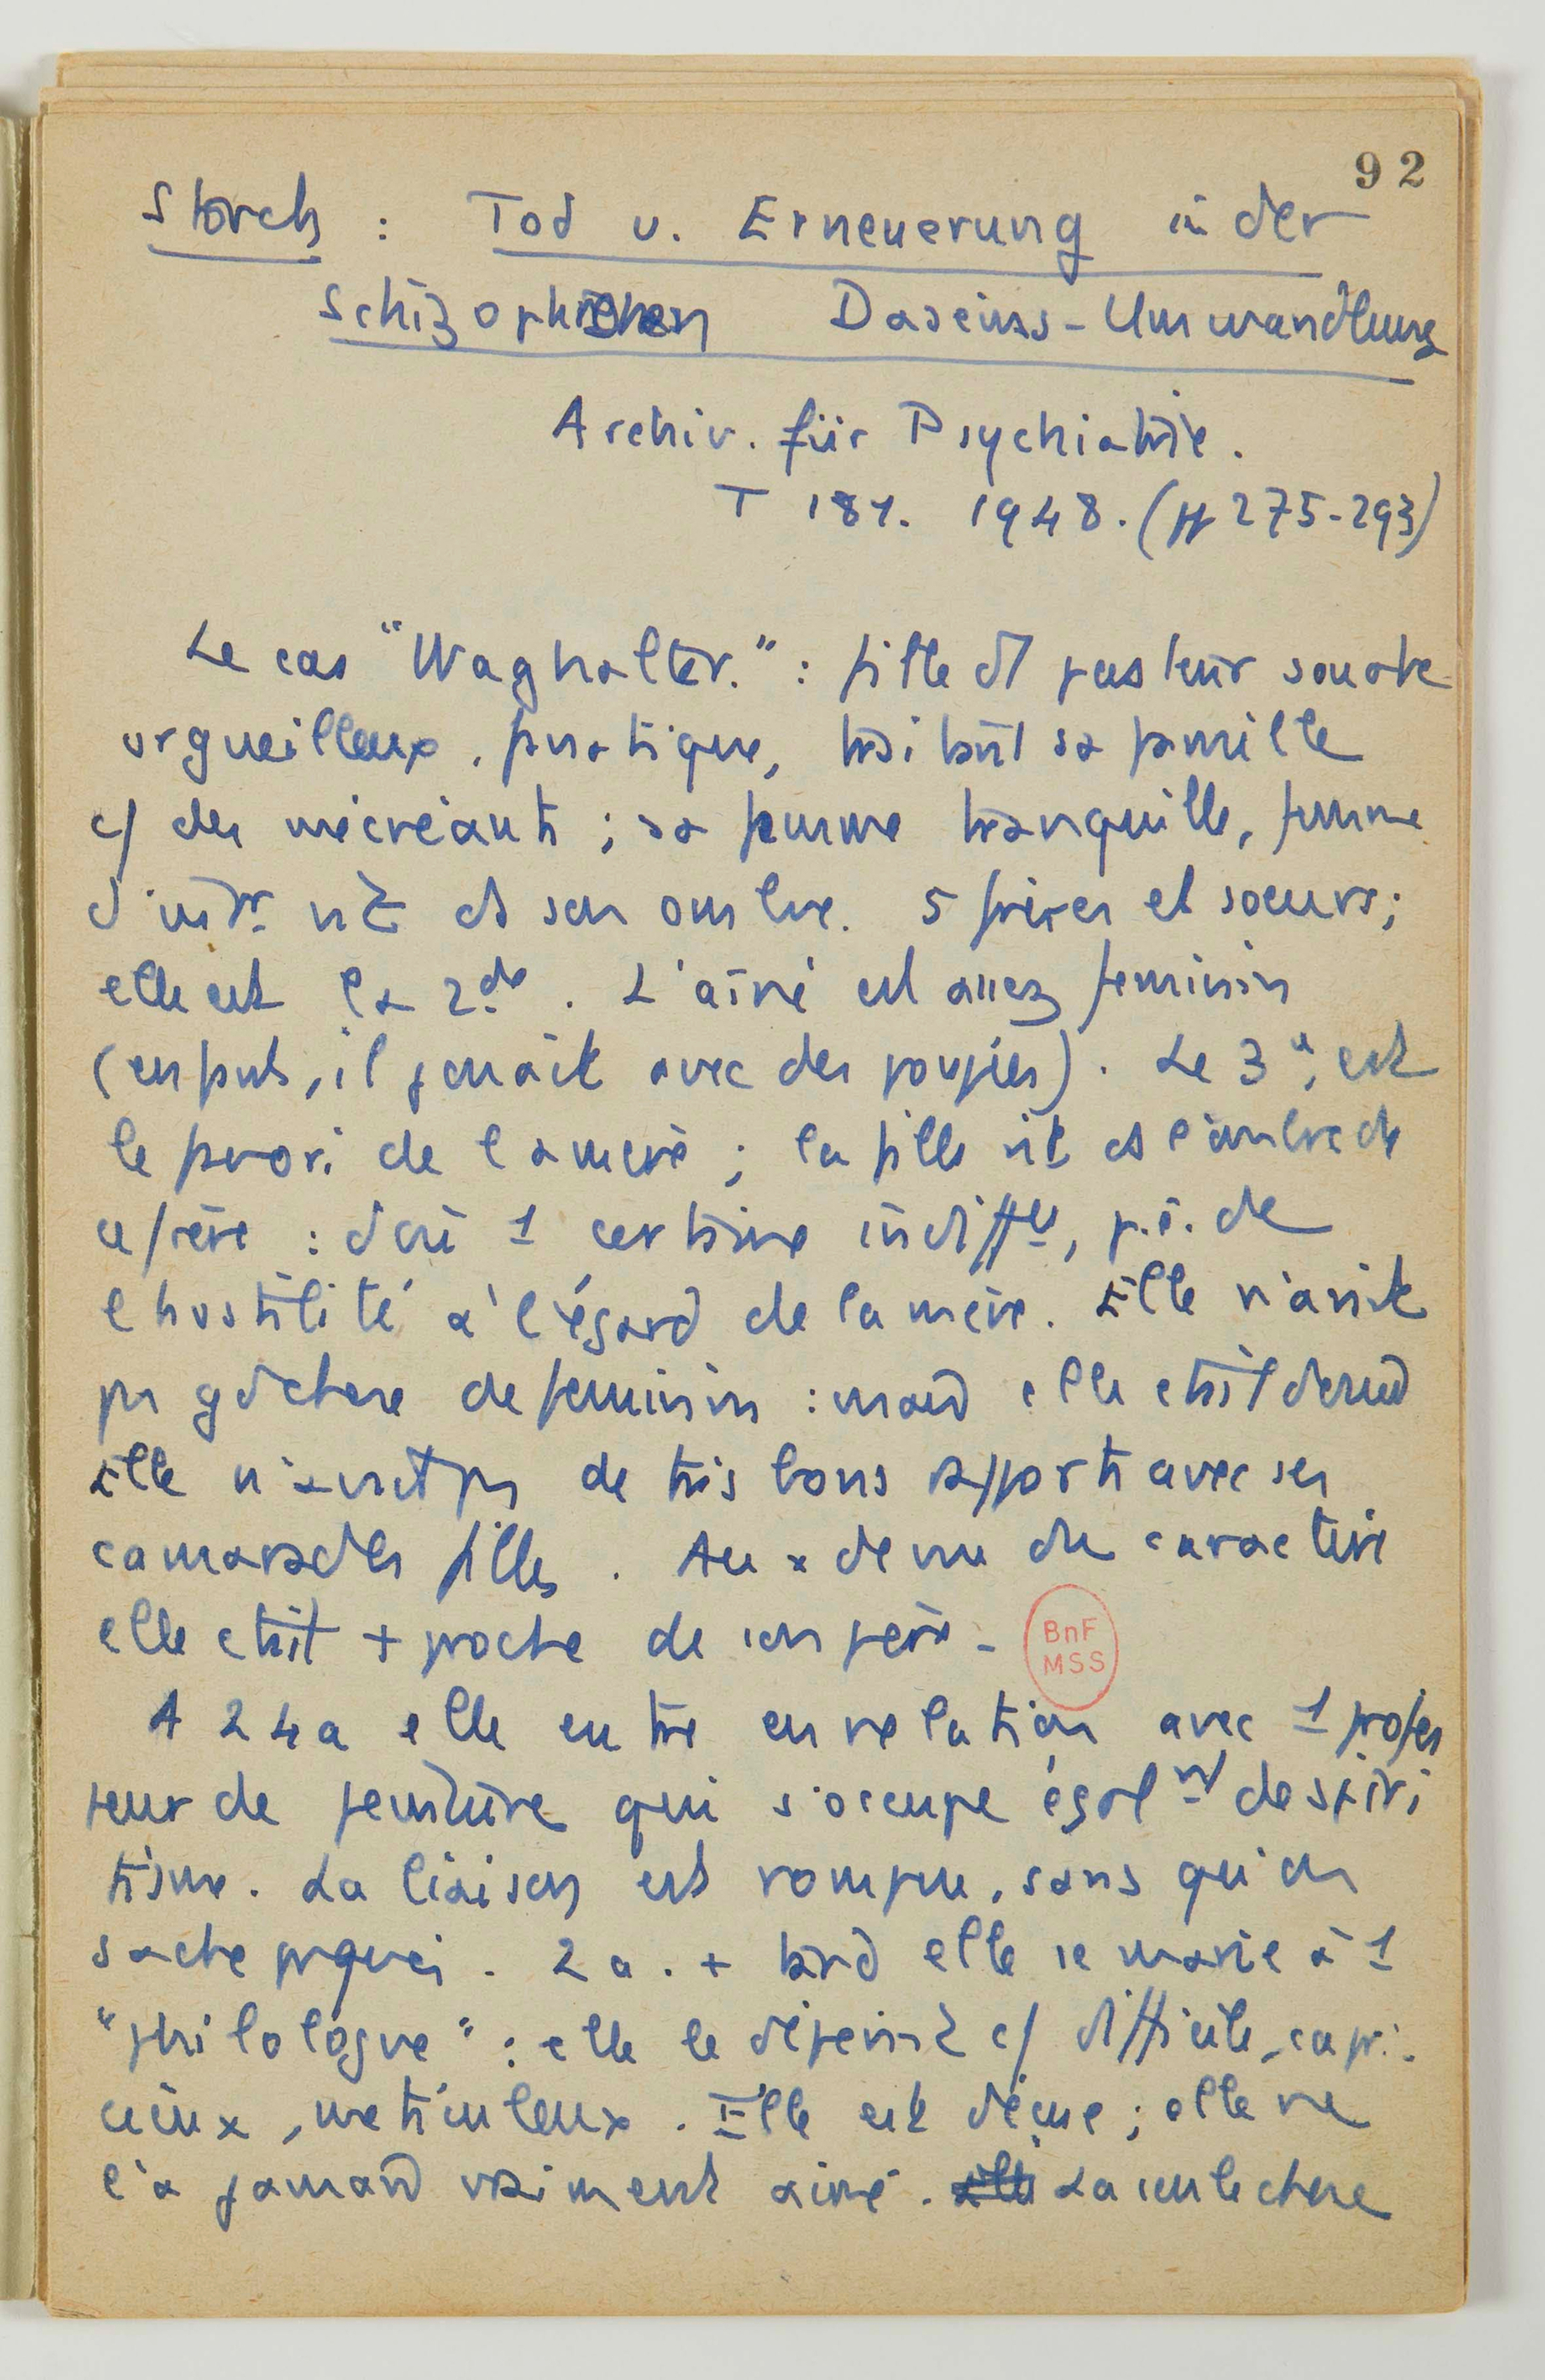 92
Storch : Tod u. Erneuerung in der
schizophrenen Daseins-Umwandlung
Archiv. für Psychiatrie.
T 181. 1948. (pp 275-293)
Le cas "Waghalter." : fille d'1 pasteur souabe
orgueilleux, fanatique, traitant sa famille
c/ des mécréants ; sa femme tranquille, femme
d'intér. vit ds son ombre. 5 frères et soeurs ;
elle est la 2de. L'aîné est assez féminin
(enfant, il jouait avec des poupées). Le 3e, est
le favori de la mère ; la fille vit ds l'ombre de
ce frère : d'où 1 certaine indiffce, p.ê. de
l'hostilité à l'égard de la mère. Elle n'avait
pas gdchose de féminin :
Elle n'avait pas de très bons rapports avec ses
camarades filles. Au x de vue du caractère
elle était + proche de son père -
BnF
MSS
A 24 a elle entre en relation avec 1 profes
seur de peinture qui s'occupe égalnt de spiri
tisme. La liaison est rompue, sans qu'on
sache prquoi. 2 a. + tard elle se marie à 1
"philologue" : elle le dépeint c/ difficile, capri
cieux, méticuleux. Elle est déçue ; elle ne
l'a jamais vraiment aimé. La seule chose